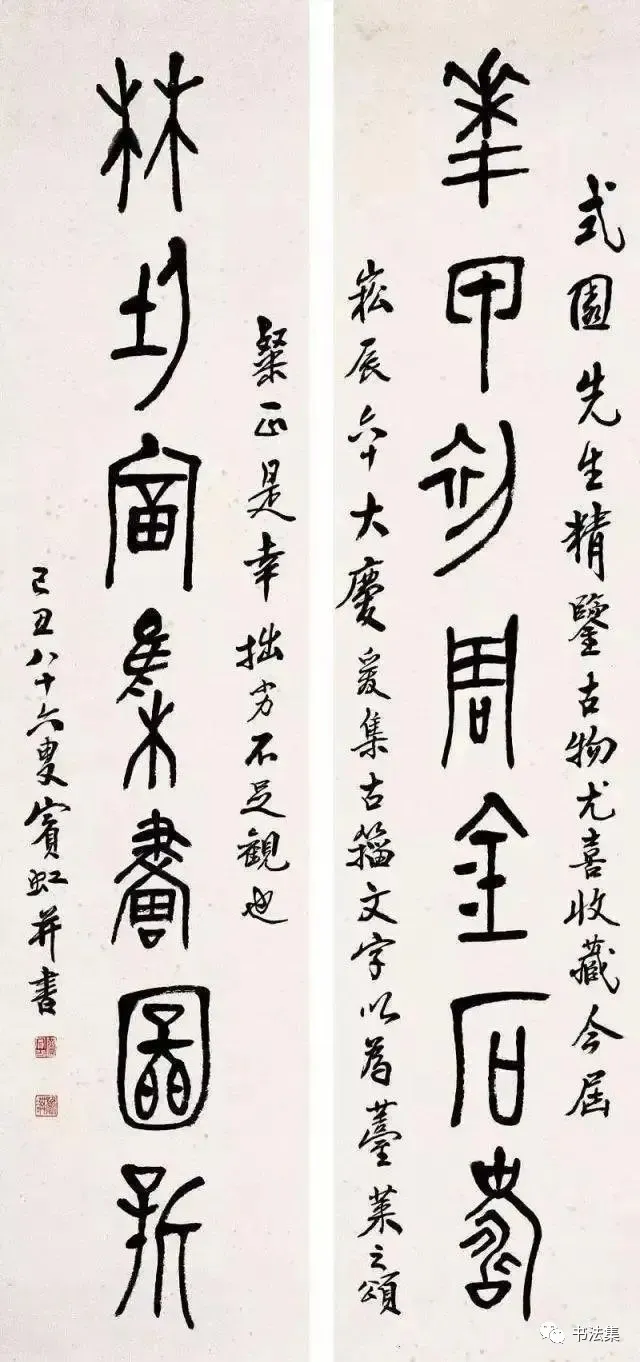 式園先生精鑒古物尤喜收藏今屆
華甲初周金石壽
崧辰六十大慶爰集古籀文字以為薹萊之頌
粲正是幸拙劣不足觀也
林富集畫圖新
己丑八十六叟賓虹并書
书法集